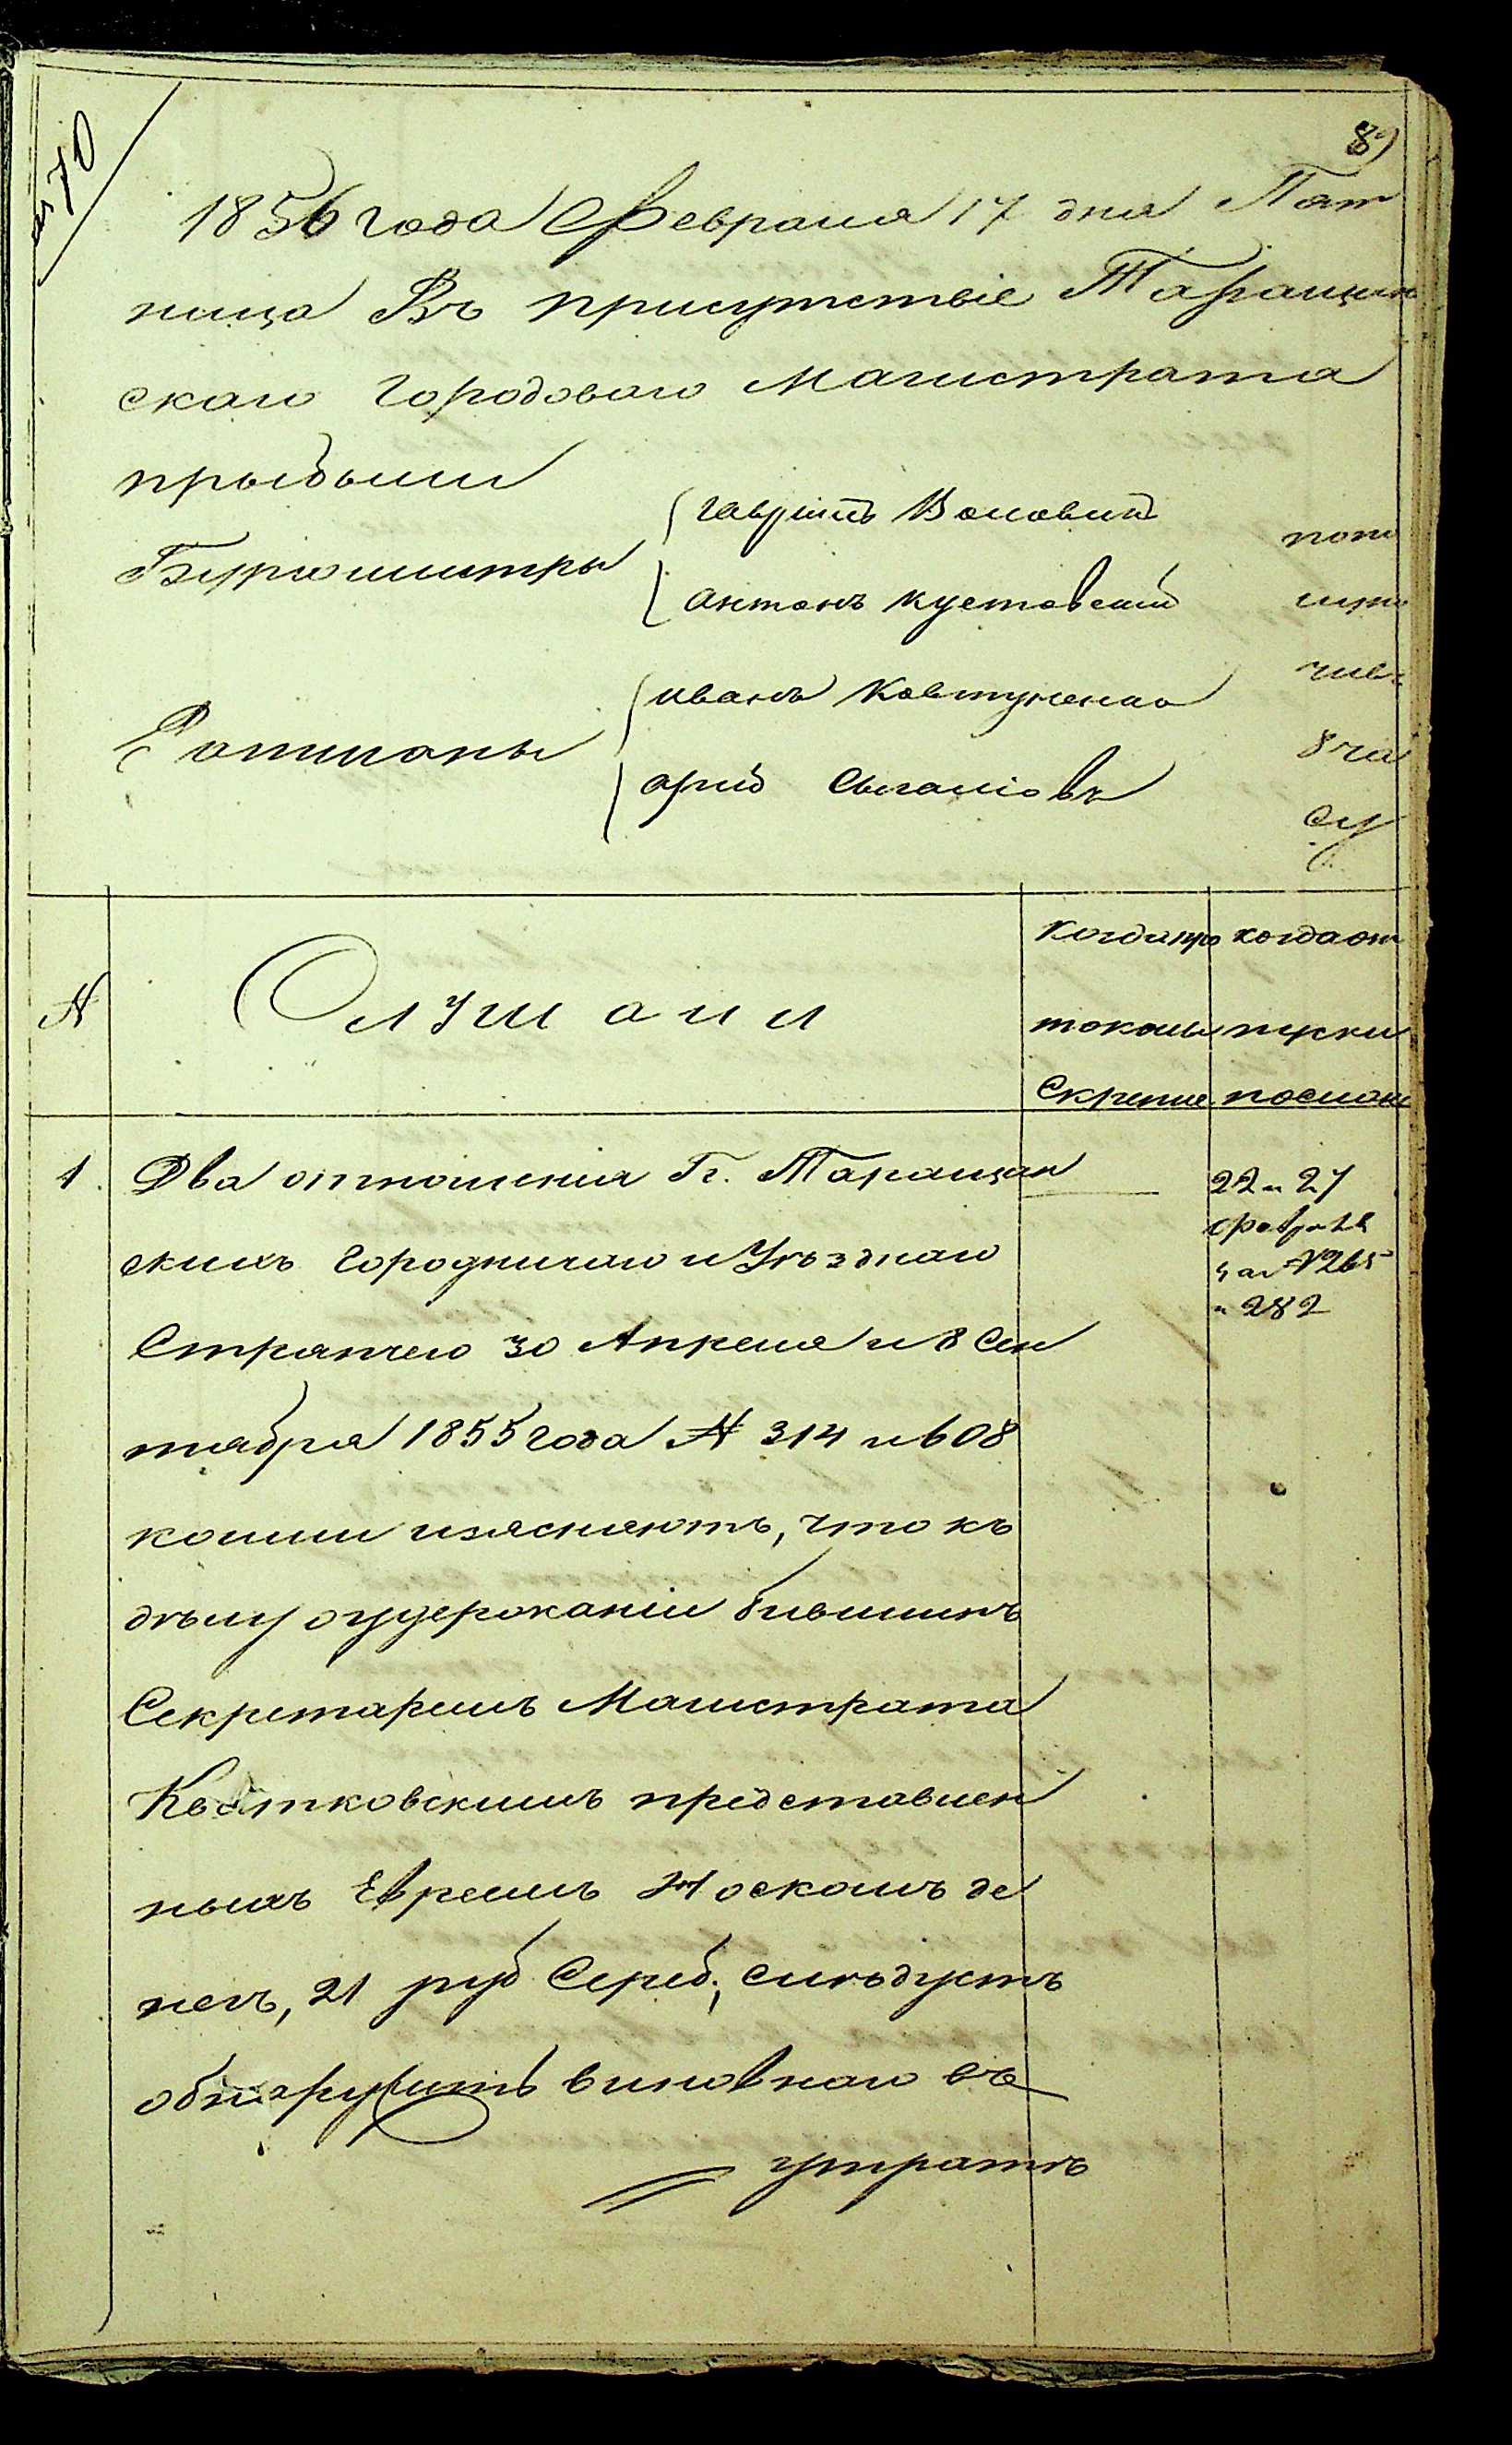 70
89
1856 года Февраля 17 дня Пят
ница Въ присутствіе Таращан
скаго Городоваго Магистрата
прыбыли
Бургомистры
Гавриилъ Воловик
Антонъ Кустовский
Ратманы
Иванъ Ковтуненко
поло
чив
8 ча
су
№
Слушали
Когда про
токолы
Скрепле
когда от
пуски
послан
1.
Два отношенія Гг. Таращан
скихъ Городничаго и Уѣзднаго
Стряпчего 30 Апреля и 8 Сен
тября 1855 года № 314 и 608
коими изясняютъ, что къ
дѣлу о удержаніи бившимъ
Секретаремъ Магистрата
Квятковскимъ представлен
ныхъ Евреемъ Москомъ де
негъ, 21 руб Сереб., слѣдуетъ
обнаружить виновнаго въ
утратѣ
22 и 27
Февраля
за № 265
и 282